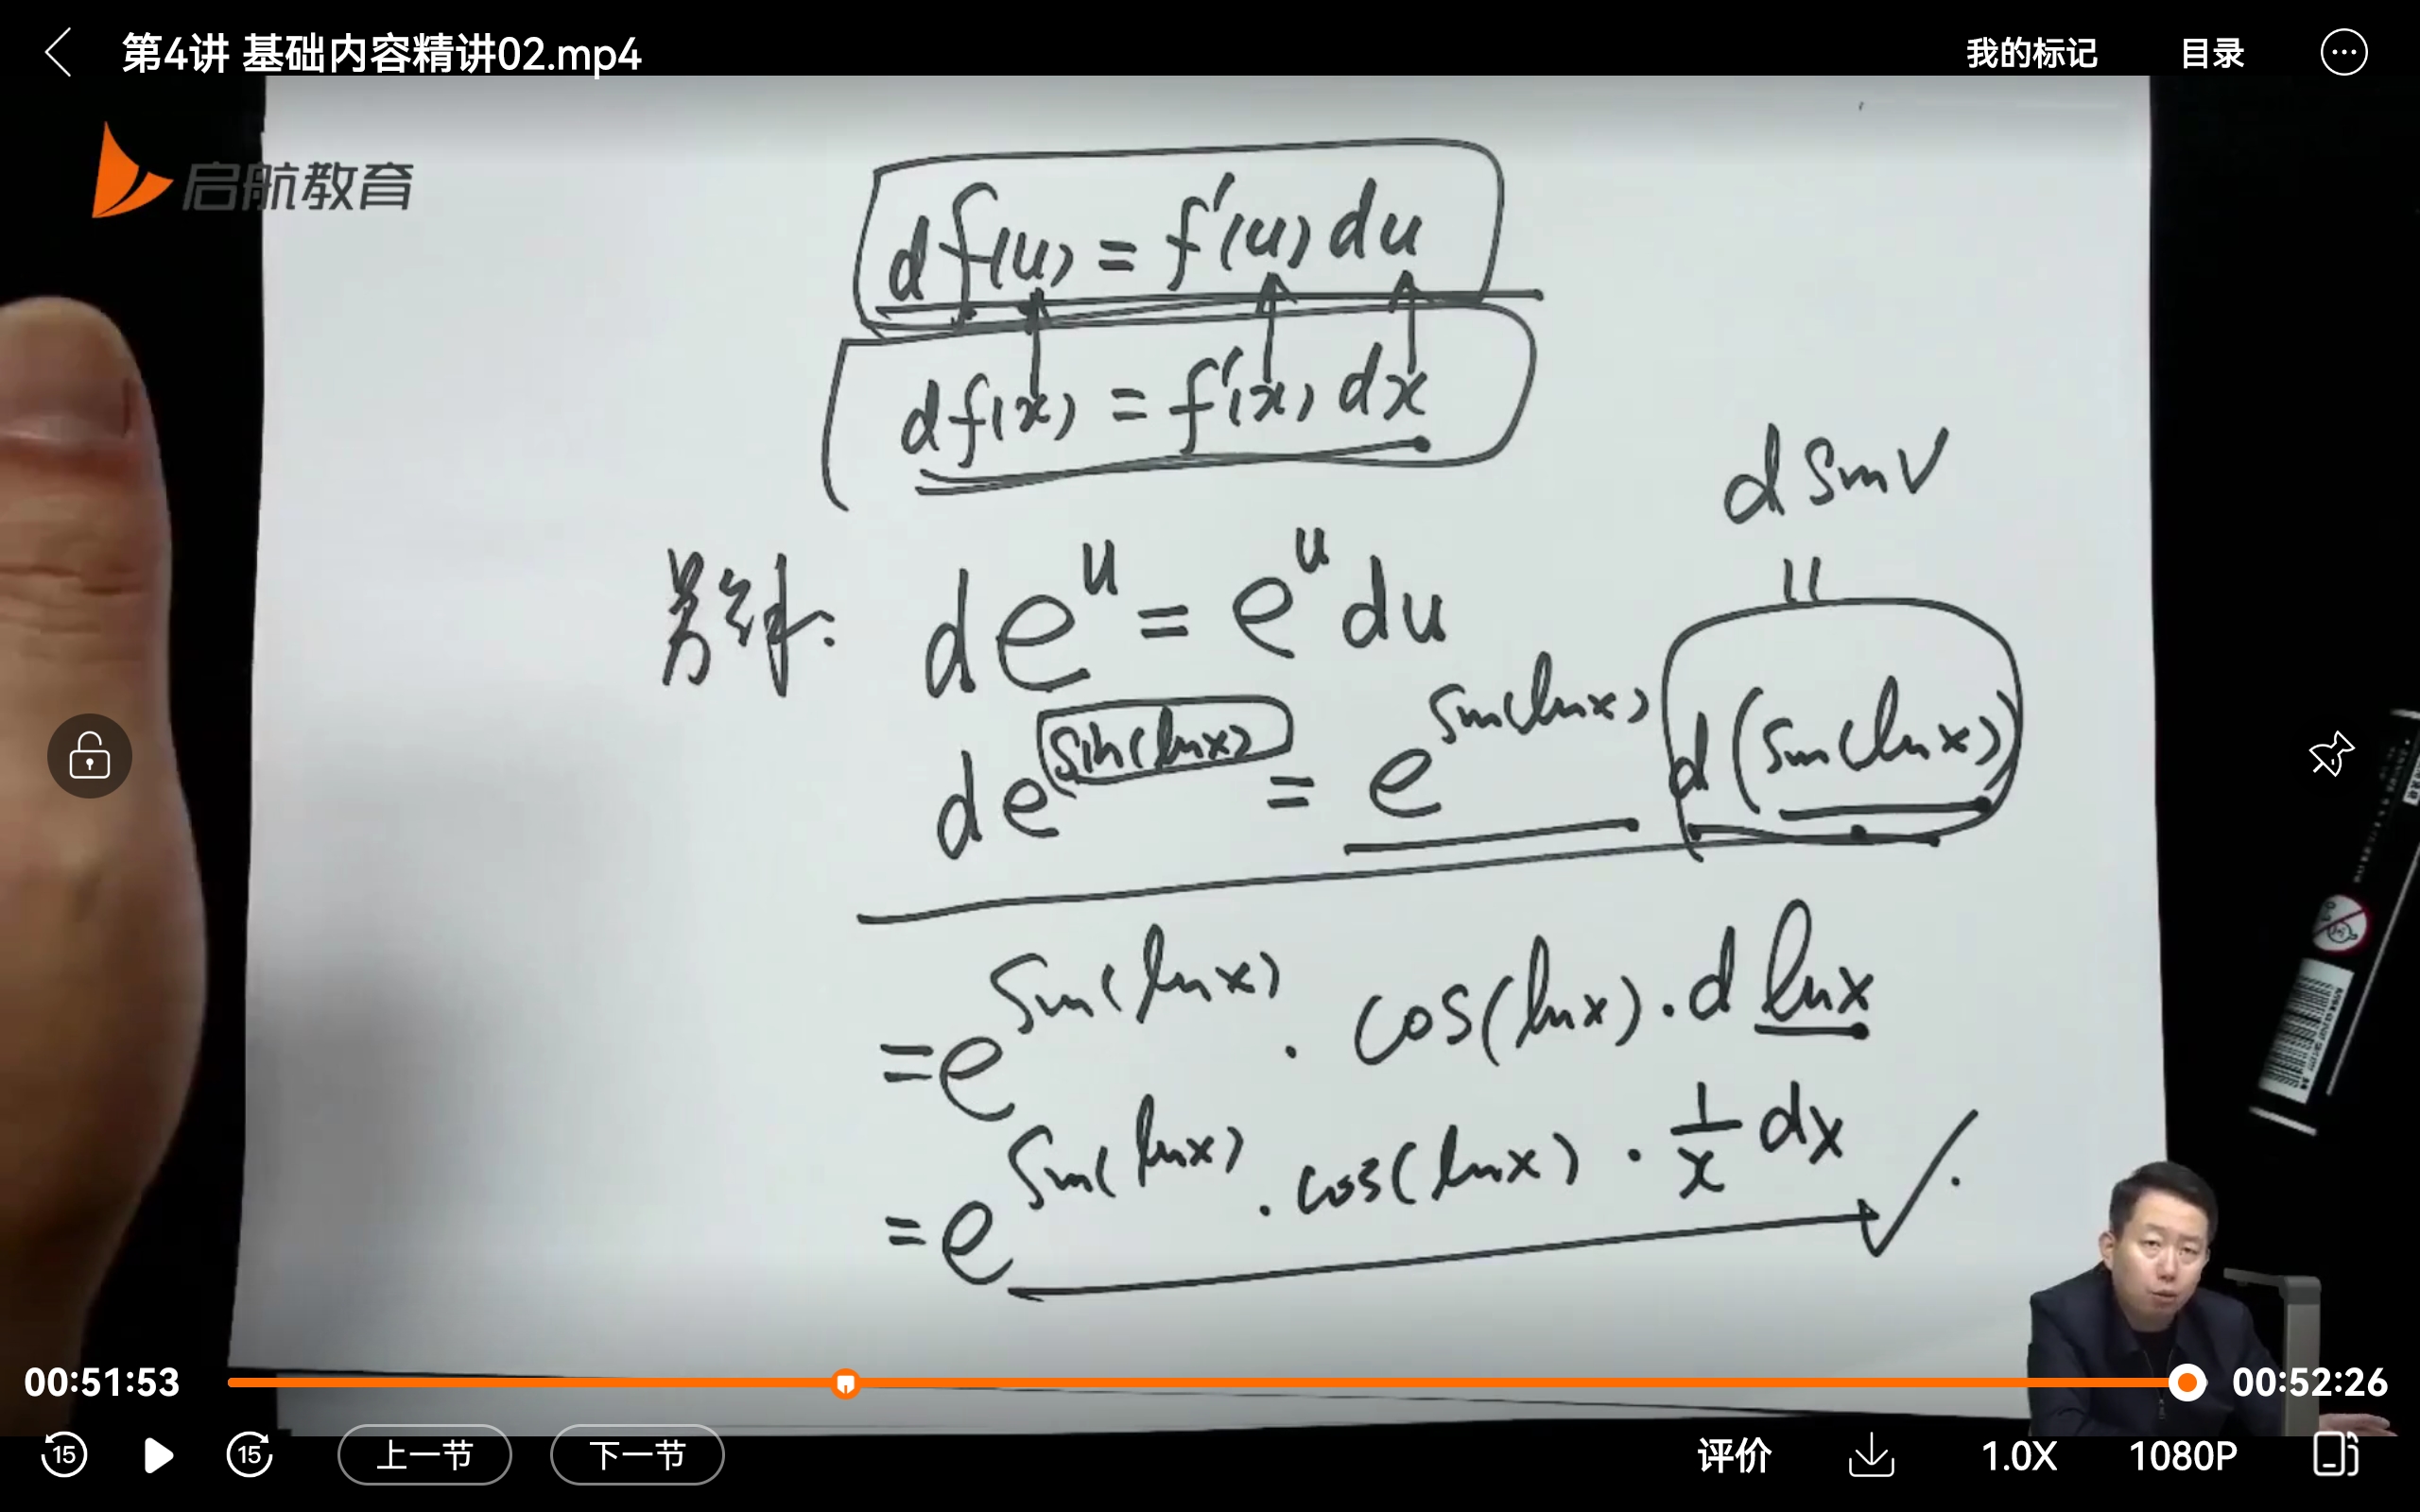 第4讲 基础内容精讲02.mp4
我的标记
目录
启航教育
df(u) = f'(u) du
df(x) = f'(x) dx
d sin v
=
de^u = e^u du
de^sin(lnx) = e^sin(lnx) d(sin(lnx))
= e^sin(lnx) · cos(lnx) · d lnx
= e^sin(lnx) · cos(lnx) · 1/x dx ✓.
00:51:53
00:52:26
15
15
上一节
下一节
评价
1.0X
1080P